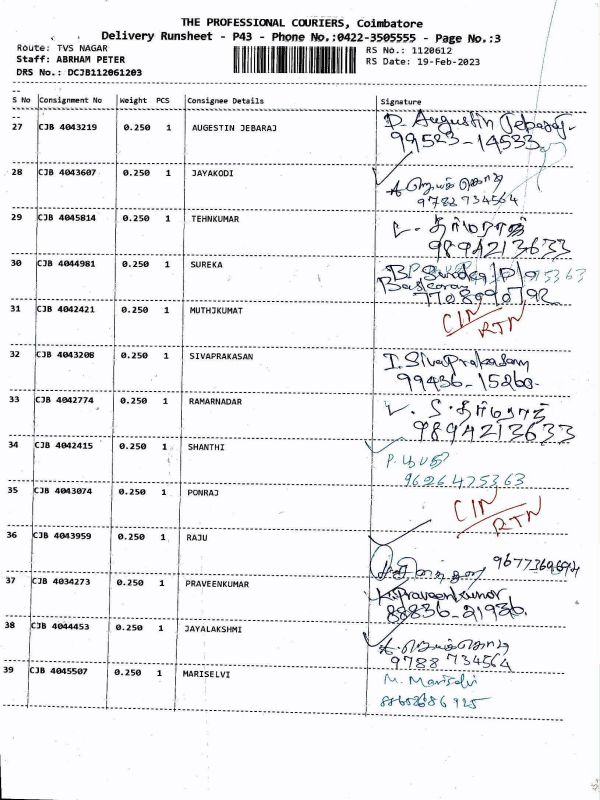 THE PROFESSIONAL COURIERS, Coimbatore
Delivery Runsheet - P43 - Phone No.:0422-3505555 - Page No.:3
Route: TVS NAGAR
RS No.: 1120612
Staff: ABRHAM PETER
RS Date: 19-Feb-2023
DRS No.: DCJB112061203
S No Consignment No Weight PCS Consignee Details Signature
27 CJB 4043219 0.250 1 AUGESTIN JEBARAJ D. Augustin Jebaraj.
99523-14533
28 CJB 4043607 0.250 1 JAYAKODI
9782734564
29 CJB 4045814 0.250 1 TEHNKUMAR
9894213633
30 CJB 4044981 0.250 1 SUREKA
7708990792
31 CJB 4042421 0.250 1 MUTHJKUMAT CIN
RTN
32 CJB 4043208 0.250 1 SIVAPRAKASAN I. SivaPrakasam
99436-15260.
33 CJB 4042774 0.250 1 RAMARNADAR
9894213633
34 CJB 4042415 0.250 1 SHANTHI
9626475363
35 CJB 4043074 0.250 1 PONRAJ CIN
RTN
36 CJB 4043959 0.250 1 RAJU
37 CJB 4034273 0.250 1 PRAVEENKUMAR K.Praveenkumar
88836-21936.
38 CJB 4044453 0.250 1 JAYALAKSHMI
9788 734564
39 CJB 4045507 0.250 1 MARISELVI M. Mariselvi